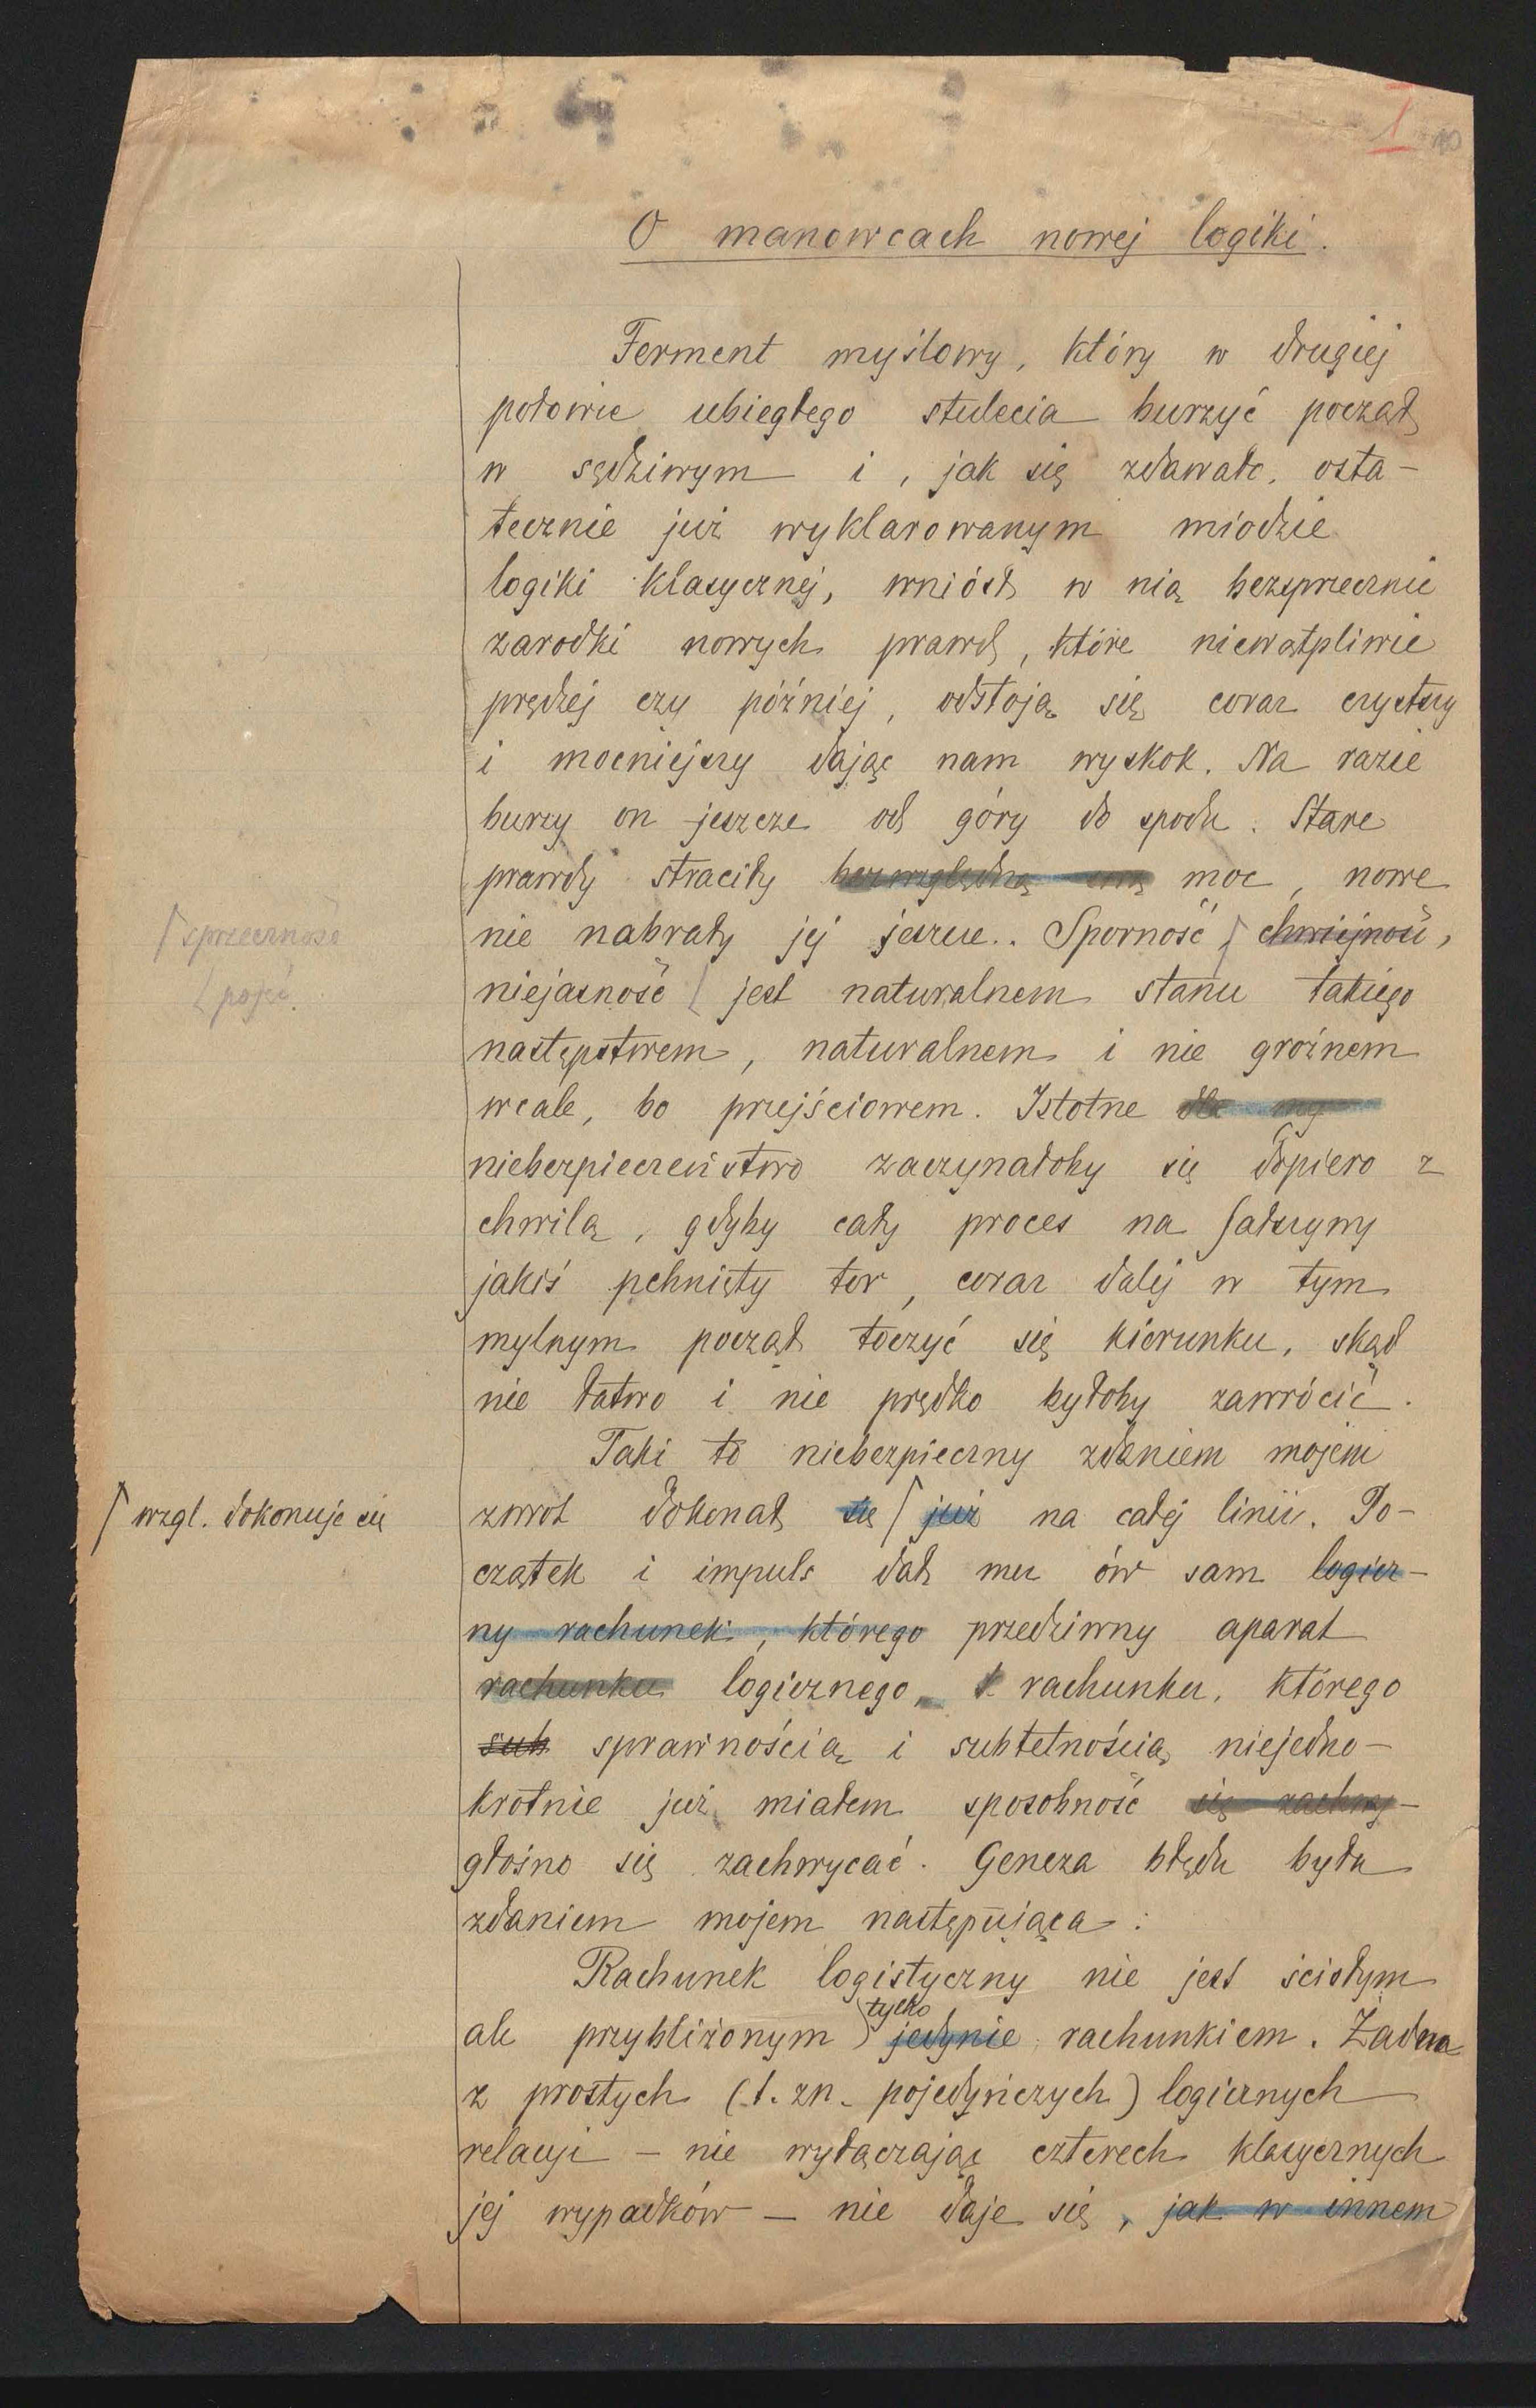 I 10
O manowcach nowej logiki.
Ferment myślowy, który w drugiej
połowie ubiegłego stulecia burzyć począł
w sędziwym i, jak się zdawało, osta-
tecznie już wyklarowanym miodzie
logiki klasycznej, wniósł w nią bezsprzecznie
zarodki nowych prawd, które niewątpliwie
prędzej czy później, odstoją się coraz czystszy
i mocniejszy dając nam wyskok. Na razie
burzy on jeszcze od góry do spodu. Stare
prawdy straciły bezwzględną swą moc, nowe
nie nabrały jej jeszcze.. Sporność ⌈ chwiejność,
⌈ sprzeczność
niejasność ⌊ jest naturalnem stanu takiego
⌊ pojęć.
następstwem, naturalnem i nie groźnem
wcale, bo przejściowem. Istotne dla
niebezpieczeństwo zaczynałoby się dopiero z
chwilą, gdyby cały proces na fałszywy
jakiś pchnięty tor, coraz dalej w tym
mylnym począł toczyć się kierunku, skąd
nie łatwo i nie prędko byłoby zawrócić.
Taki to niebezpieczny zdaniem mojem
zwrot dokonał się ⌈ już na całej linii. Po-
⌈ wzgl. dokonuje się
czątek i impuls dał mu ów sam logicz-
ny rachunek, którego przedziwny aparat
rachunku logicznego, rachunku, którego
sub sprawnością i subtelnością niejedno-
krotnie już miałem sposobność się zachwy-
głośno się zachwycać. Geneza błędu była
zdaniem mojem następująca:
Rachunek logistyczny nie jest ścisłym
tylko
ale przybliżonym jedynie rachunkiem. Żadna
z prostych (t. zn. pojedyńczych) logicznych
relacji – nie wyłączając czterech klasycznych
jej wypadków – nie daje się, jak w innem